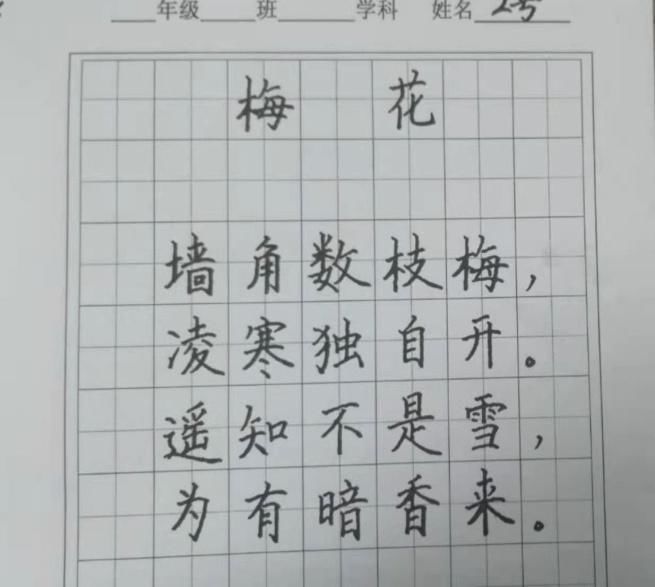 ____年级____班______学科 姓名 2号
梅 花
墙角数枝梅，
凌寒独自开。
遥知不是雪，
为有暗香来。